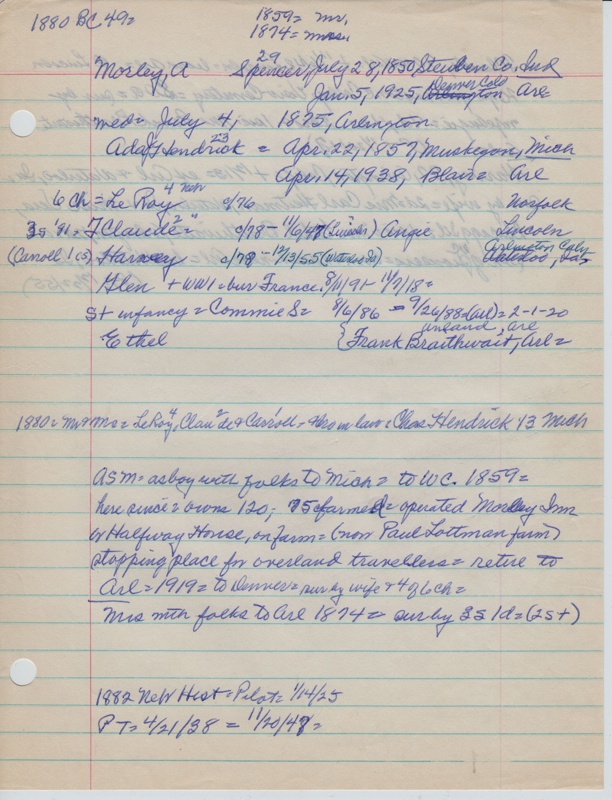 1880 BC 49=
1859= mr.
1874= mrs.
Morley, A Spencer, July 28, 1850 Steuben Co. Ind
29
Jan. 5, 1925, Arlington Denver Colo Arl
med= July 4, 1875, Arlington
Ada Hendrick = Apr. 22, 1857, Muskegon, Mich
23
Apr. 14, 1938, Blair= Arl
6 ch= Le Roy 4 Neb c/76 Norfolk
3s '91= F Claude 2 " c/78 - 11/6/47 (Lincoln) Angie Lincoln
(Carroll 1 c5) Harvey c/78 - 12/13/55 (Waterloo) Arlington Waterloo,
Glen + WW1= bur France. 8/11/91- 11/7/18=
st infancy= Commie S= 8/6/86 - 9/26/88 (arl)=2-1-20
Ethel { Frank Braithwait, Arl=
1880= Mr & Mrs= LeRoy 4, Claude 2 & Carroll - bro in law= Chas Hendrick 13 Mich
ASM= as boy with folks to Mich= to WC. 1859=
here since= owns 120; 75 cfarmed= operated Morley Inn
or Halfway House, on farm= (now Paul Lottman farm)
stopping place for overland travellers= retire to
Arl= 1919= to Denver= sur by wife & 4 of 6 ch=
Mrs with folks to Arl 1874= sur by 3s 1d= (2s+)
1882 New Hist= Pilot= 1/14/25
PT= 4/21/38 = 11/20/47=